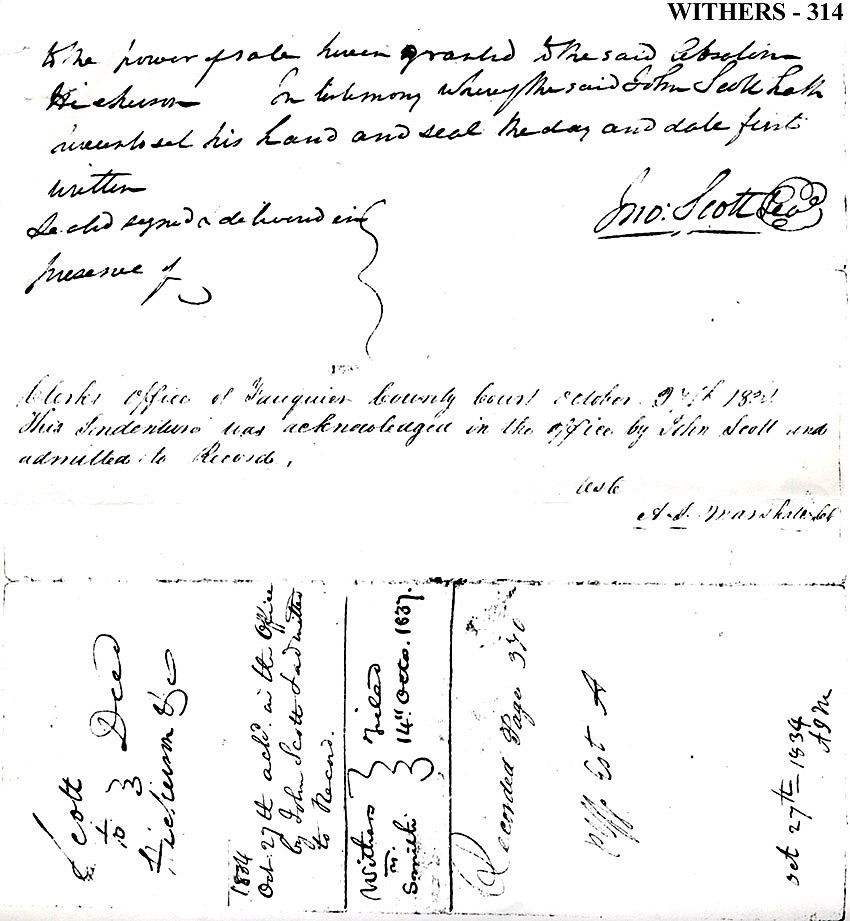 WITHERS - 314
to the power of sale herein granted to the said Absolom
Hickerson In testimony whereof the said John Scott hath
hereunto set his hand and seal the day and date first
written
Sealed signed & delivered in
presence of
Jno: Scott Seal
Clerks Office of Fauquier County Court October 27th 1834
This Indenture was acknowledged in the office by John Scott and
admitted to Record.
Teste
A. J. Marshall Ck
Scott
to } Deed
Hickerson &c
1834
Oct. 27th ackd. in the Office
by John Scott & admitted
to Record.
Withers
vs } Filed
Smith } 14th Octo. 1837.
Recorded Page 370
plffs Ext A
oct 27th 1834
AJM